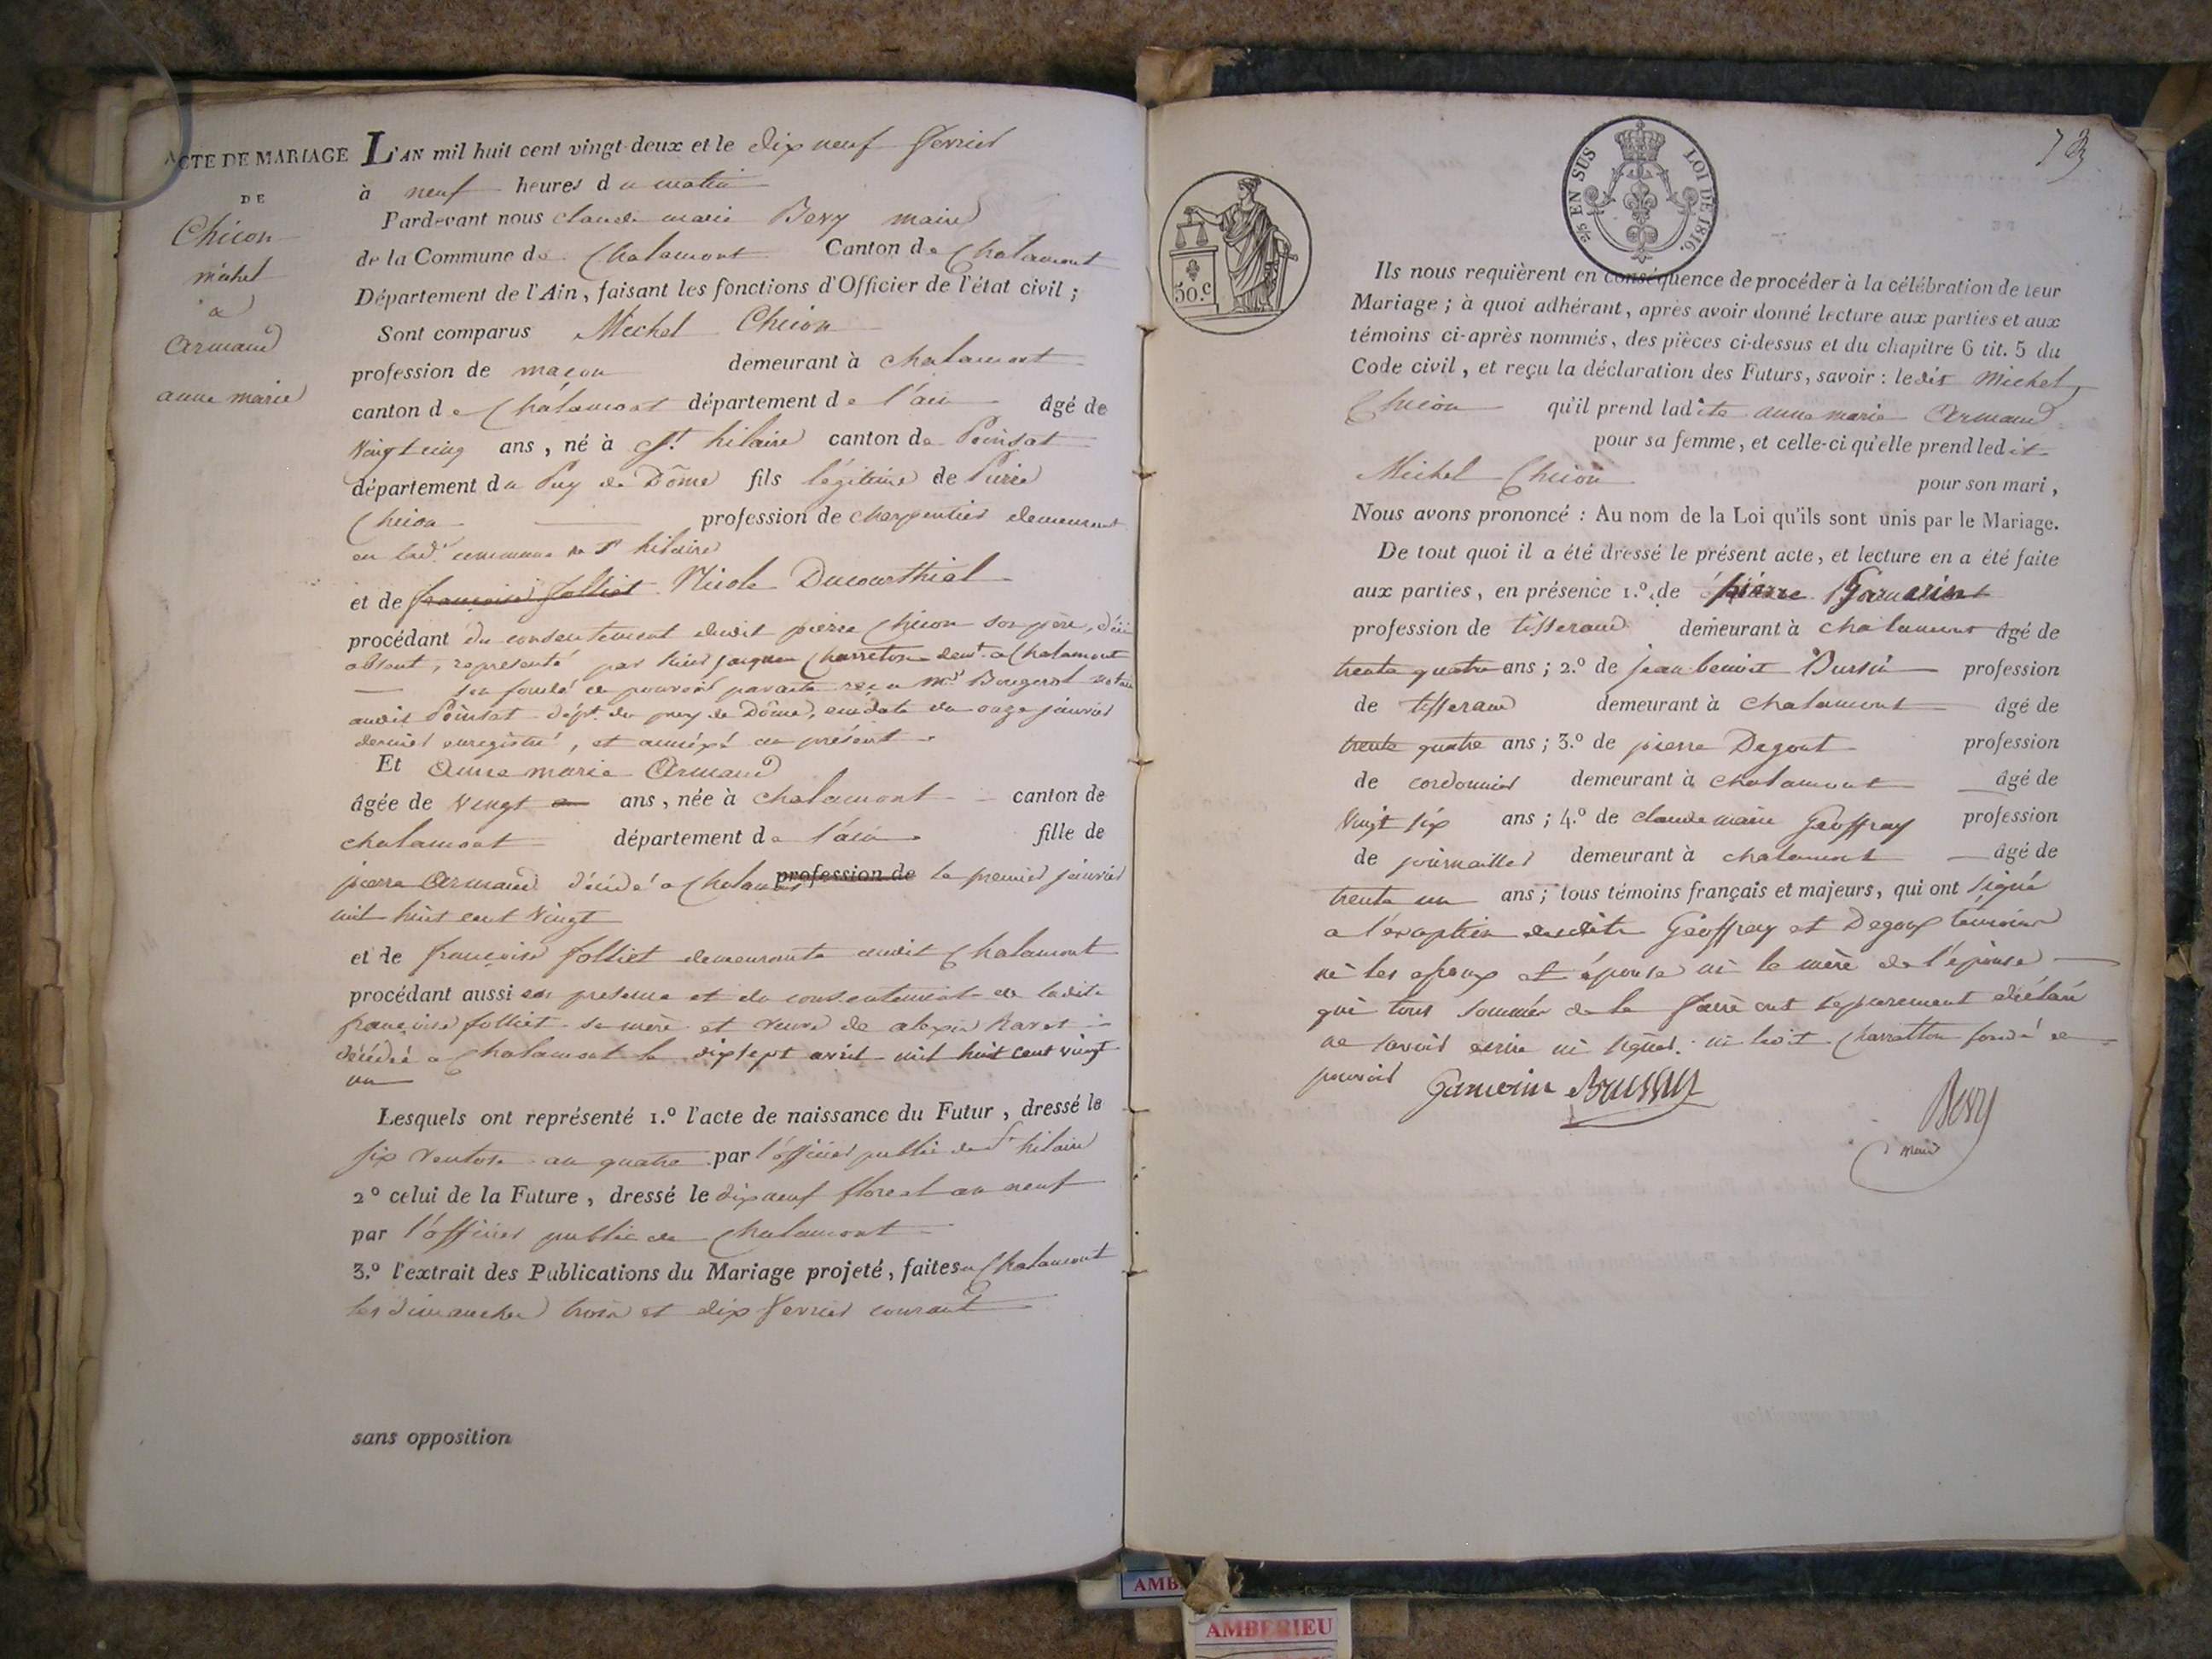 ACTE DE MARIAGE
DE
Chicon
michel
a
Armand
anne marie
L'AN mil huit cent vingt-deux et le dix neuf fevrier
à neuf heures du matin
Pardevant nous Claude marie Bevy maire
de la Commune de Chalamont Canton de Chalamont
Département de l'Ain, faisant les fonctions d'Officier de l'état civil ;
Sont comparus Michel Chicon
profession de maçon demeurant à chalamont
canton de Chalamont département de l'ain âgé de
vingt cinq ans, né à St. hilaire canton de Poinsat
département du Puy de Dôme fils légitime de Pierre
Chicon profession de charpentier demeurant
en lad. commune de St hilaire
et de françoise folliet Nicole Ducourthial
procédant du consentement dudit pierre Chicon son père,
absent, représenté par jacques Charreton demt. a Chalamont
fondé de pouvoir par acte reçu Me Bougerol notaire
audit Poinsat dépt. du puy de Dôme, en date du onze janvier
dernier enregistré, et annéxé au présent
Et Anne marie Armand
âgée de vingt ans, née à chalamont canton de
chalamont département de l'ain fille de
pierre Armand décédé a Chalamont profession de le premier janvier
mil huit cent vingt
et de françoise folliet demeurante audit Chalamont
procédant aussi en presence et du consentement de ladite
françoise folliet sa mère et veuve de alexis Ravet
décédé a Chalamont le dix sept avril mil huit cent vingt
un
Lesquels ont représenté 1.º l'acte de naissance du Futur, dressé le
six ventose an quatre par l'officier public de St hilaire
2º celui de la Future, dressé le dix neuf floreal an neuf
par l'officier public de Chalamont
3.º l'extrait des Publications du Mariage projeté, faites a Chalamont
les dimanches trois et dix fevrier courant
sans opposition
73
2/5 EN SUS LOI DE 1816.
50.c
Ils nous requièrent en conséquence de procéder à la célébration de leur
Mariage ; à quoi adhérant, après avoir donné lecture aux parties et aux
témoins ci-après nommés, des pièces ci-dessus et du chapitre 6 tit. 5 du
Code civil, et reçu la déclaration des Futurs, savoir : ledit Michel
Chicon qu'il prend ladite anne marie Armand
pour sa femme, et celle-ci qu'elle prend ledit
Michel Chicon pour son mari,
Nous avons prononcé : Au nom de la Loi qu'ils sont unis par le Mariage.
De tout quoi il a été dressé le présent acte, et lecture en a été faite
aux parties, en présence 1.º de pierre
profession de tisserand demeurant à chalamont âgé de
trente quatre ans ; 2.º de jean benoit profession
de tisserand demeurant à chalamont âgé de
trente quatre ans ; 3.º de pierre Degout profession
de cordonnier demeurant à chalamont âgé de
vingt six ans ; 4.º de claude marie Geoffray profession
de journaillier demeurant à chalamont âgé de
trente un ans ; tous témoins français et majeurs, qui ont signé
a l'exception desdits Geoffray et Degout témoins
ni les epoux et épouse ni la mère de l'épouse
qui tous sommés de le faire ont separement déclaré
ne savoir ecrire ni signer. ni ledit Charretton fondé de
pouvoir
Bevy
maire
AMB
AMBERIEU